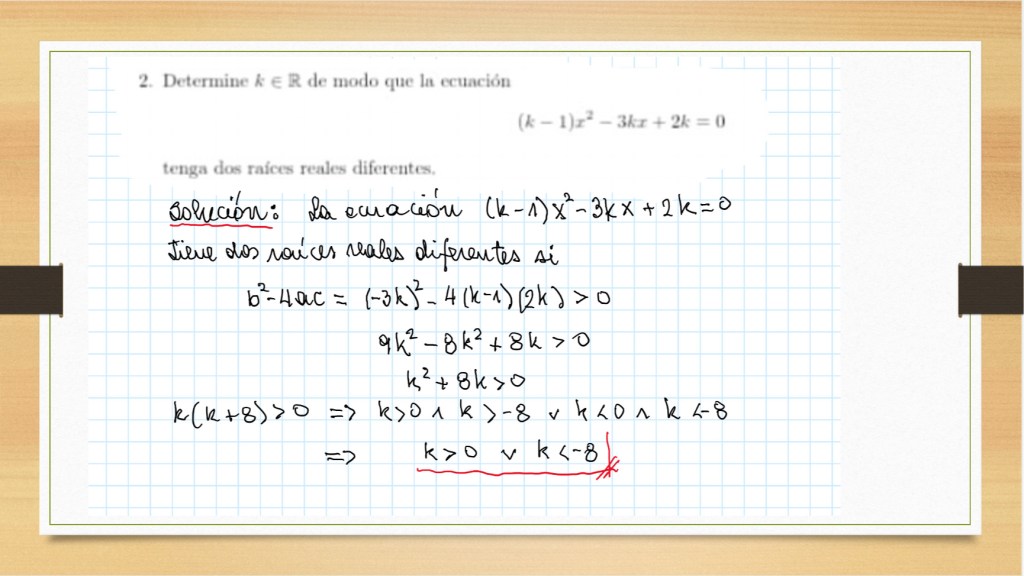 2. Determine k ∈ ℝ de modo que la ecuación
(k − 1)x² − 3kx + 2k = 0
tenga dos raíces reales diferentes.
Solución: La ecuación (k-1)x²-3kx+2k=0
tiene dos raíces reales diferentes si
b²-4ac = (-3k)²-4(k-1)(2k) > 0
9k²-8k²+8k > 0
k²+8k>0
k(k+8)>0 => k>0 ∧ k>-8 ∨ k<0 ∧ k<-8
=> k>0 ∨ k<-8